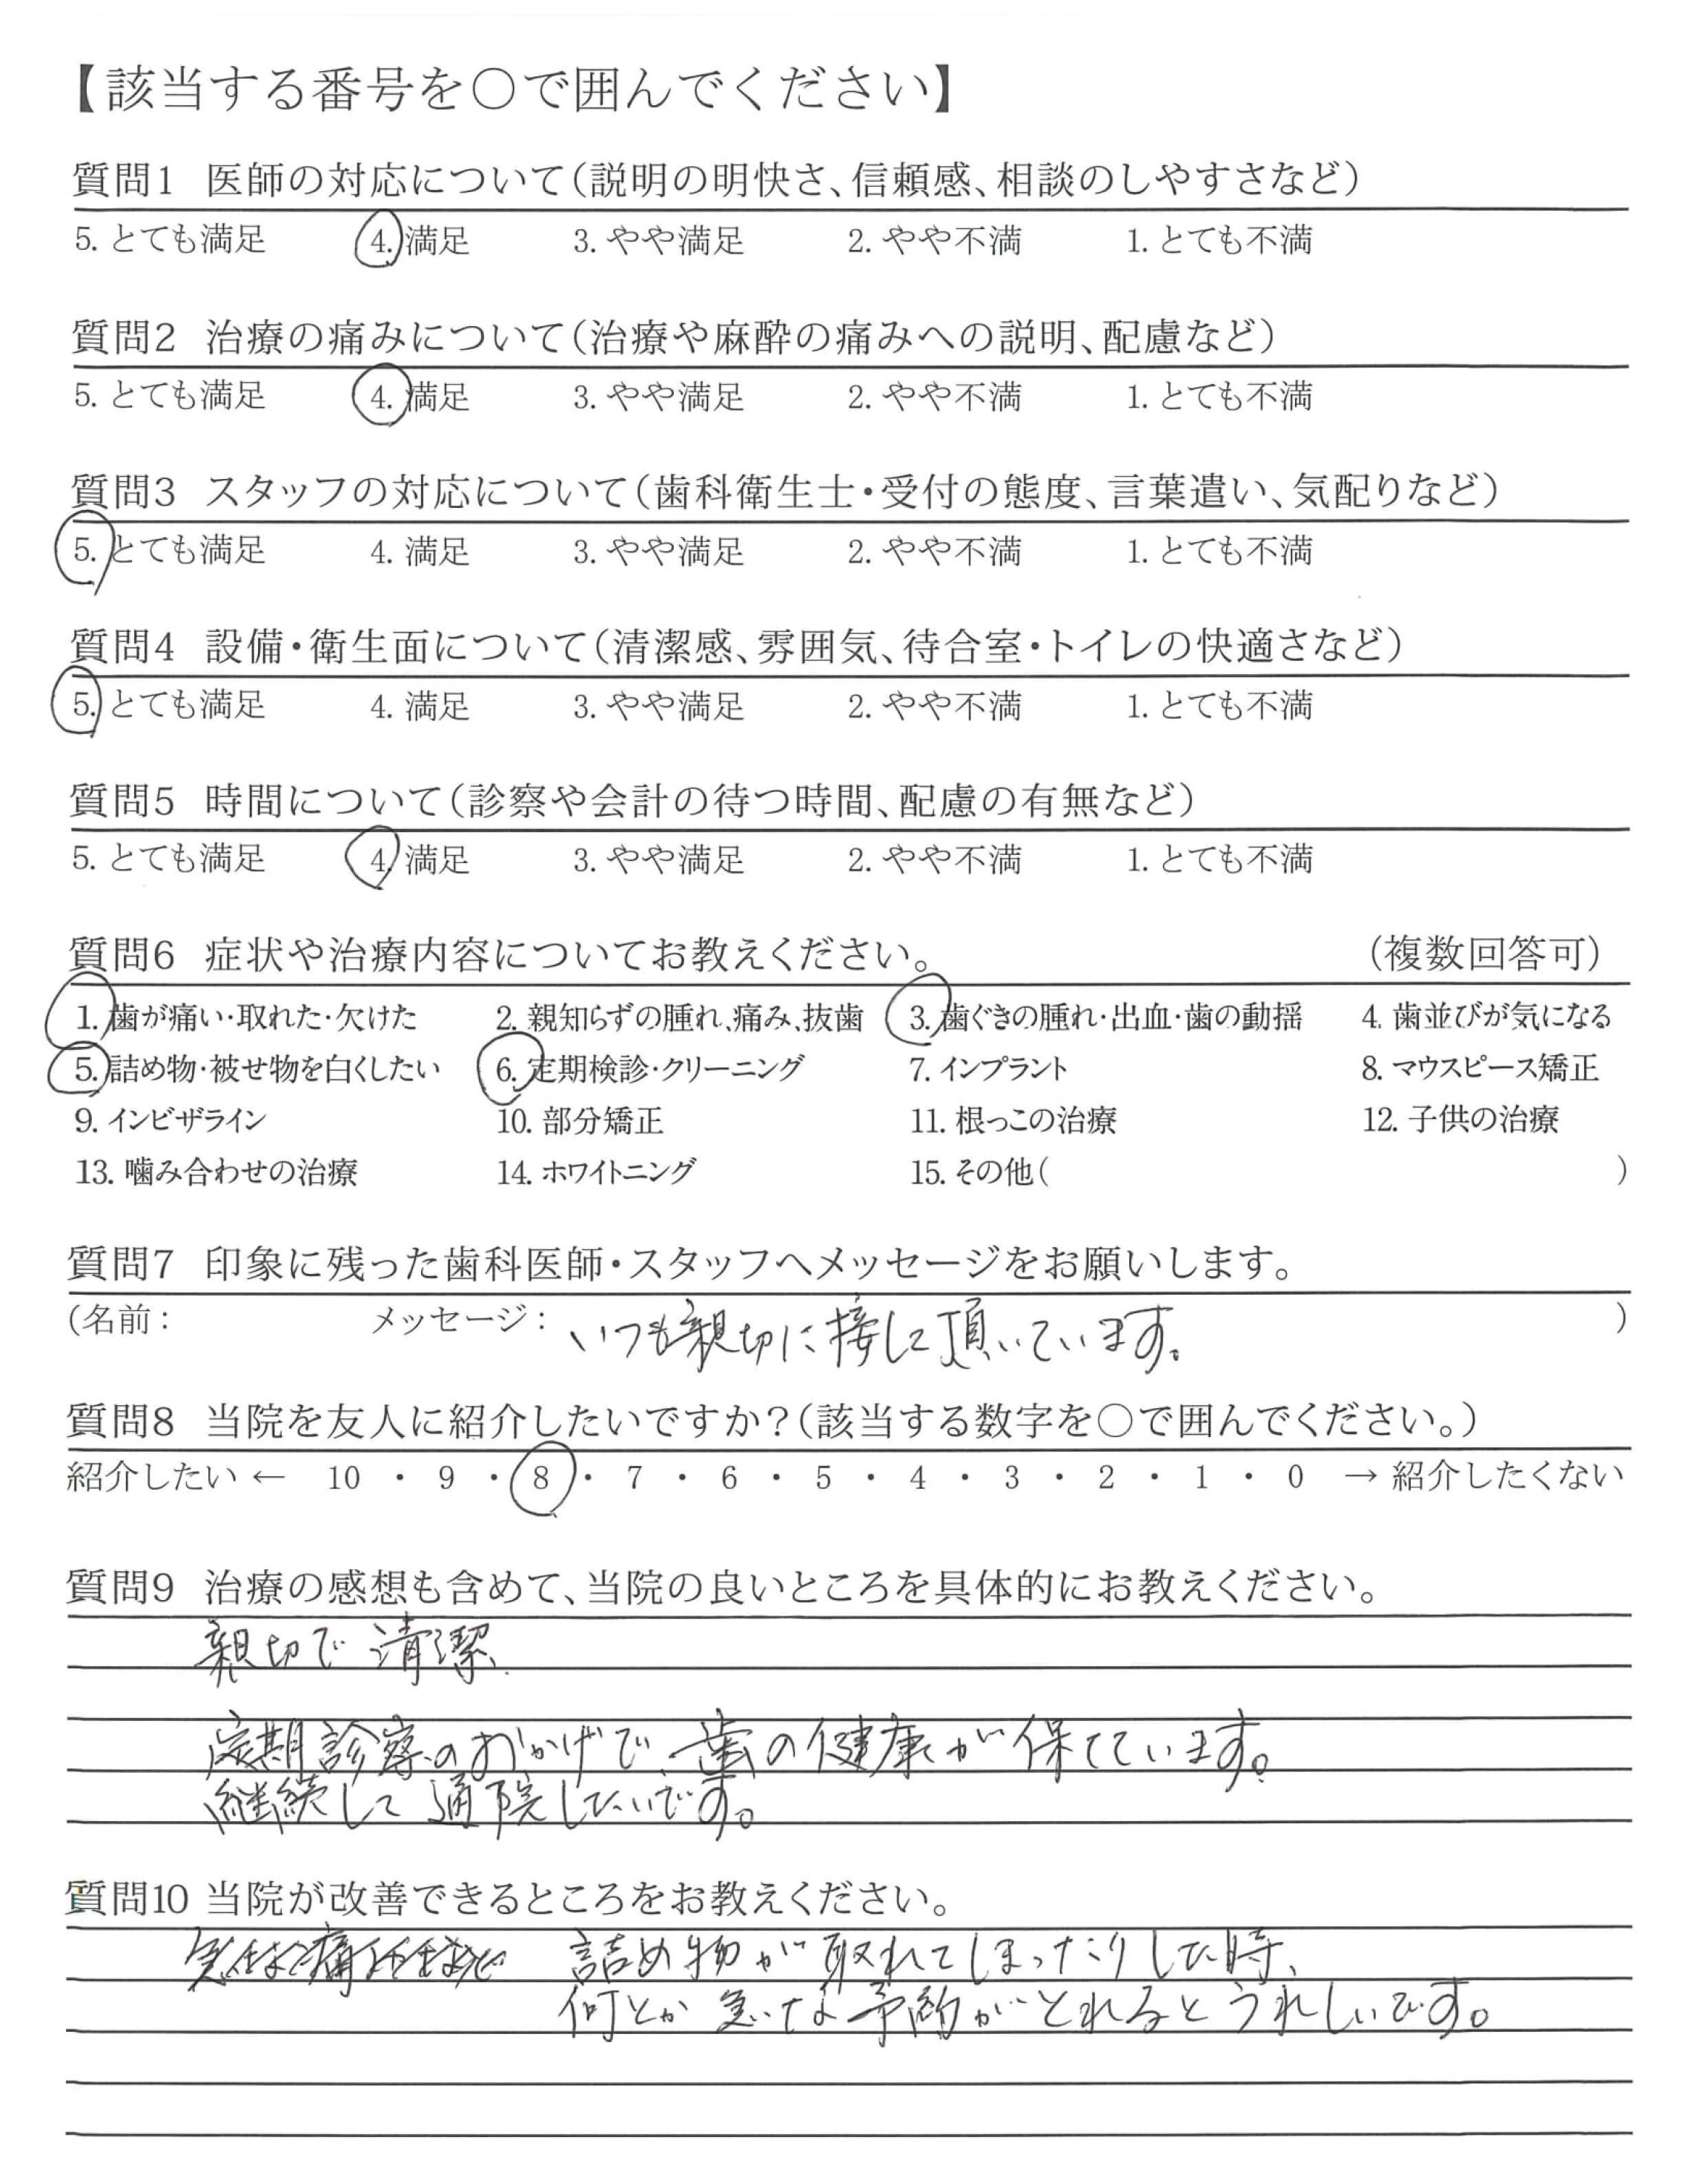 【該当する番号を〇で囲んでください】
質問1 医師の対応について(説明の明快さ、信頼感、相談のしやすさなど)
5. とても満足 4. 満足 3. やや満足 2. やや不満 1. とても不満
質問2 治療の痛みについて(治療や麻酔の痛みへの説明、配慮など)
5. とても満足 4. 満足 3. やや満足 2. やや不満 1. とても不満
質問3 スタッフの対応について(歯科衛生士・受付の態度、言葉遣い、気配りなど)
5. とても満足 4. 満足 3. やや満足 2. やや不満 1. とても不満
質問4 設備・衛生面について(清潔感、雰囲気、待合室・トイレの快適さなど)
5. とても満足 4. 満足 3. やや満足 2. やや不満 1. とても不満
質問5 時間について(診察や会計の待つ時間、配慮の有無など)
5. とても満足 4. 満足 3. やや満足 2. やや不満 1. とても不満
質問6 症状や治療内容についてお教えください。 (複数回答可)
1. 歯が痛い・取れた・欠けた 2. 親知らずの腫れ、痛み、抜歯 3. 歯ぐきの腫れ・出血・歯の動揺 4. 歯並びが気になる
5. 詰め物・被せ物を白くしたい 6. 定期検診・クリーニング 7. インプラント 8. マウスピース矯正
9. インビザライン 10. 部分矯正 11. 根っこの治療 12. 子供の治療
13. 噛み合わせの治療 14. ホワイトニング 15. その他( )
質問7 印象に残った歯科医師・スタッフへメッセージをお願いします。
(名前: メッセージ: いつも親切に接して頂いています。 )
質問8 当院を友人に紹介したいですか?(該当する数字を〇で囲んでください。)
紹介したい ← 10 ・ 9 ・ 8 ・ 7 ・ 6 ・ 5 ・ 4 ・ 3 ・ 2 ・ 1 ・ 0 → 紹介したくない
質問9 治療の感想も含めて、当院の良いところを具体的にお教えください。
親切で清潔
定期診療のおかげで、歯の健康が保てています。
継続して通院したいです。
質問10 当院が改善できるところをお教えください。
詰め物が取れてしまったりした時、
何とか急な予約がとれるとうれしいです。